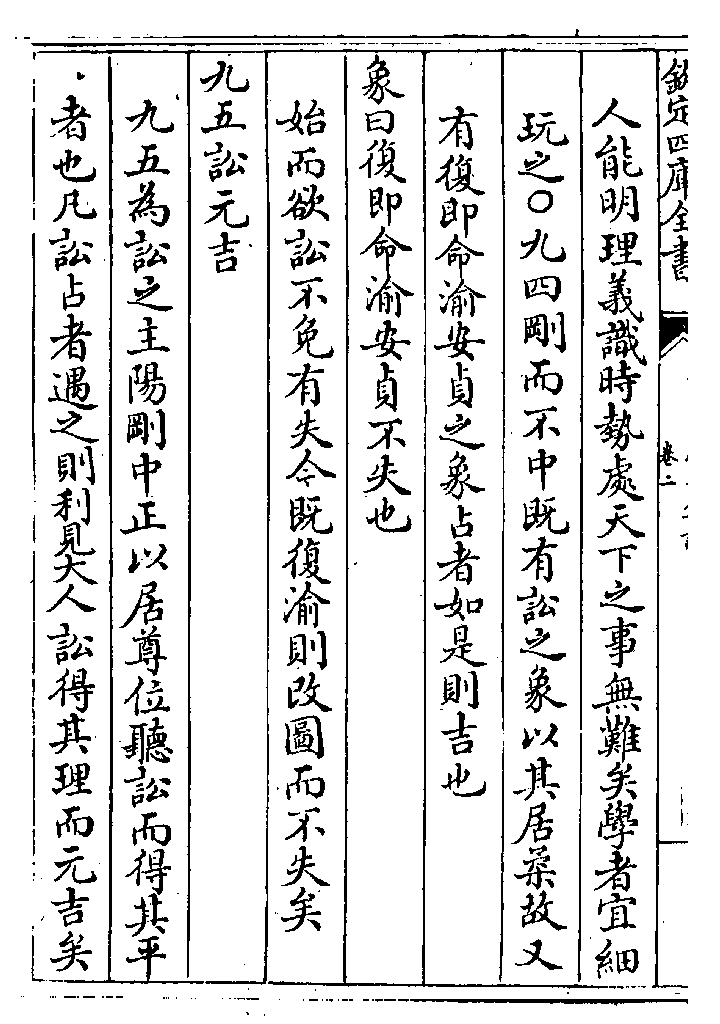 欽定四庫全書
卷二
人能明理義識時勢處天下之事無難矣學者宜細
玩之○九四剛而不中既有訟之象以其居柔故又
有復即命渝安貞之象占者如是則吉也
象曰復即命渝安貞不失也
始而欲訟不免有失今既復渝則改圖而不失矣
九五訟元吉
九五為訟之主陽剛中正以居尊位聽訟而得其平
者也凡訟占者遇之則利見大人訟得其理而元吉矣